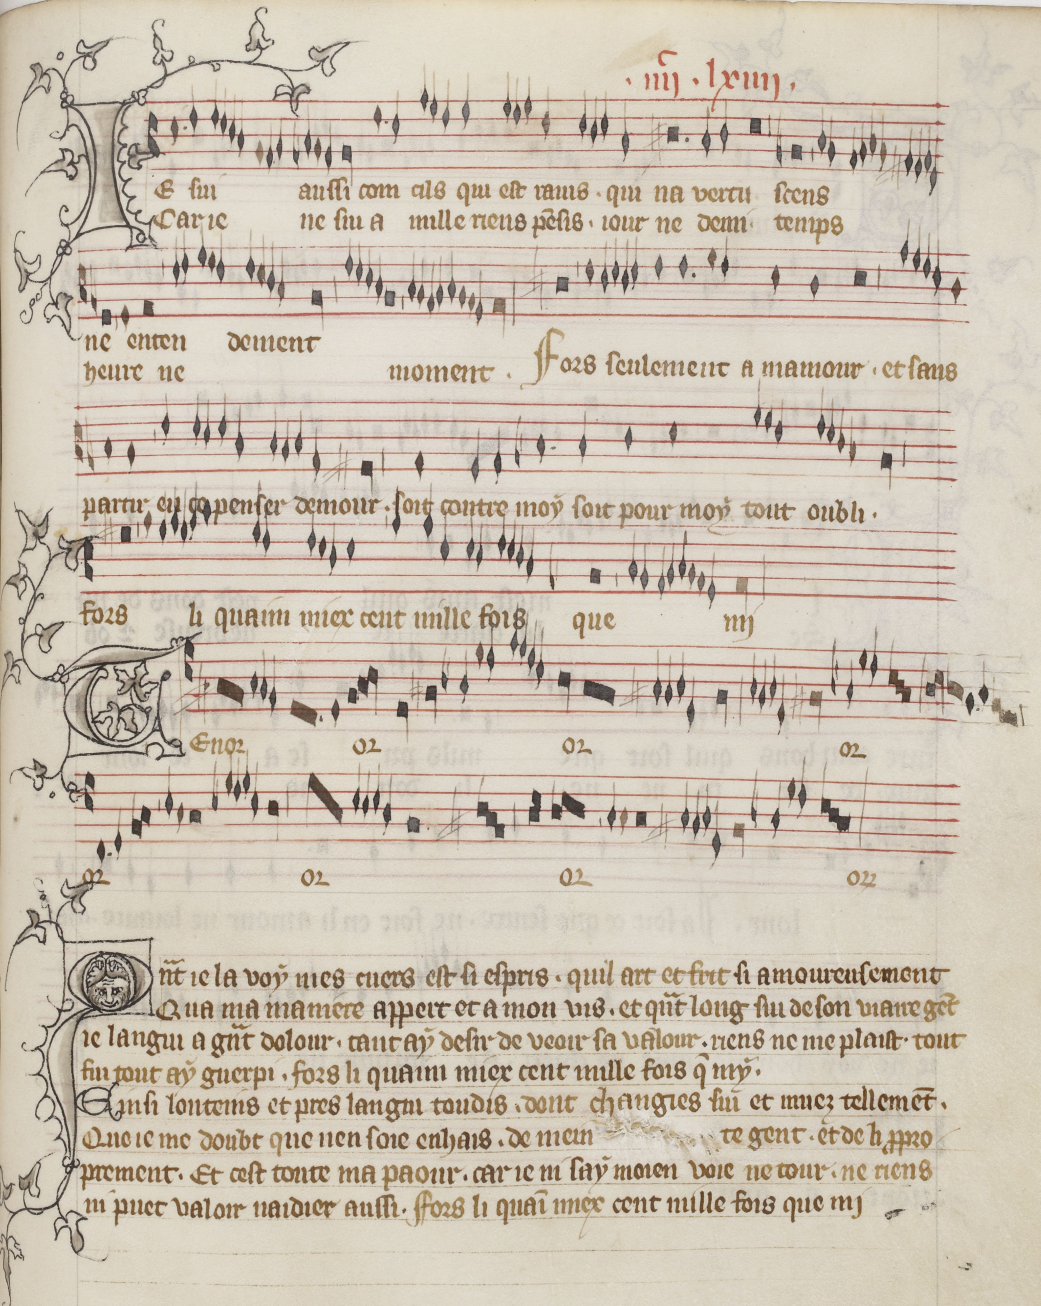 .iiii^c. lxiiii.
JE sui aussi com cils qui est ravis. qui na vertu scens
Car ie ne sui a mille riens pẽsis. iour ne demi temps
ne enten dement
heure ne moment. Fors seulement a mamour. et sans
partir en ce penser demour. soit contre moy soit pour moy tout oubli.
fors li quaim miex cent mille fois que mi
Tenor or or or
or or or orz
Qñt ie la voy mes cuers est si espris. quil art et frit si amoureusement
Qua ma maniere appert et a mon vis. et qñt long sui de son viaire gẽt
ie langui a gñt dolour. tant ay desir de veoir sa valour. riens ne me plaist. tout
fui tout ay guerpi. fors li quaim miex cent mille fois q̃ my.
Einsi lonteins et pres langui toudis. dont changies sui et muez tellemẽt.
Que ie me doubt que nen soie enhais. de mein te gent. et de li ppro
prement. Et cest toute ma paour. car ie ni say moien voie ne tour. ne riens
ni puet valoir naidier aussi. Fors li quaĩ miex cent mille fois que mi